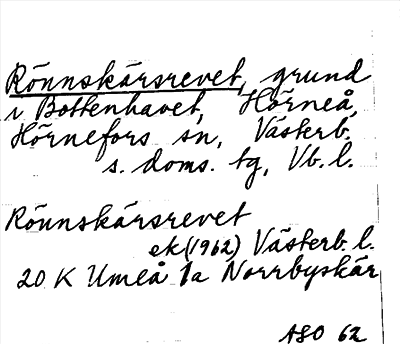 Rönnskärsrevet, grund
i Bottenhavet, Hörneå,
Hörnefors sn, Västerb.
s. doms. tg, Vb. l.
Rönnskärsrevet
ek (1962) Västerb. l.
20 K Umeå 1a Norrbyskär
ASO 62